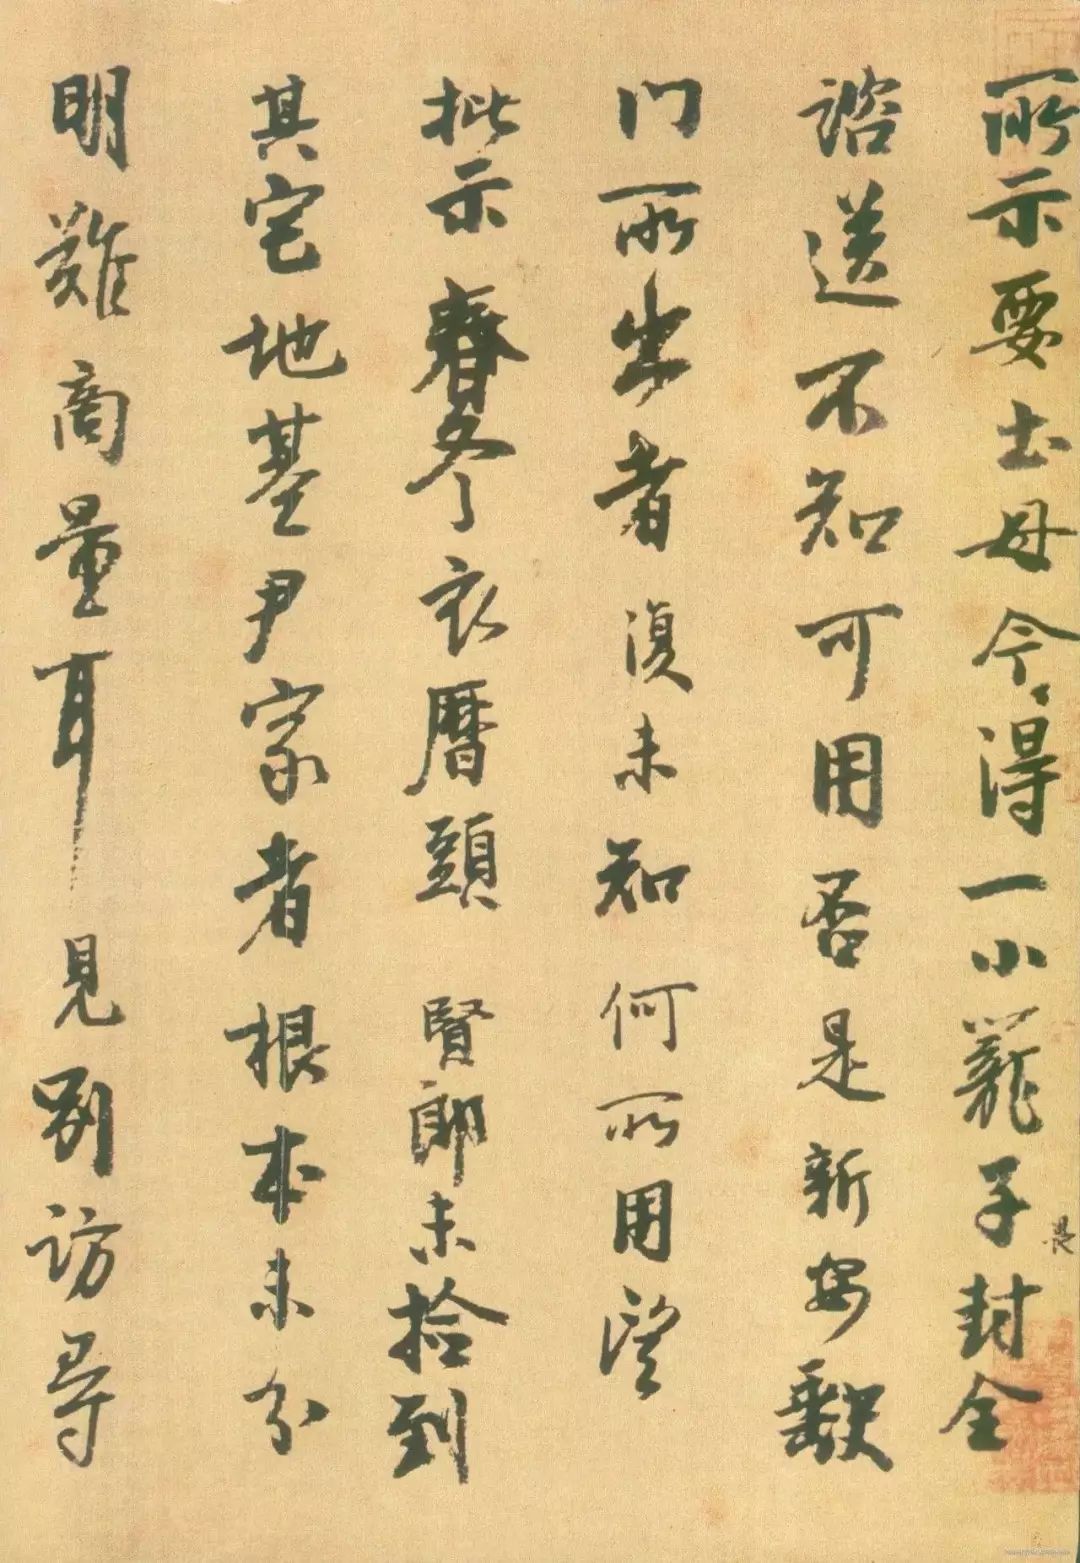 所示要土母今得一小籠子封全
諮送不知可用否是新安缺
门所出者復未知何所用望
批示春冬衣曆頭賢郎未捡到
其宅地基尹家者根本未分
明難商量耳見別访尋